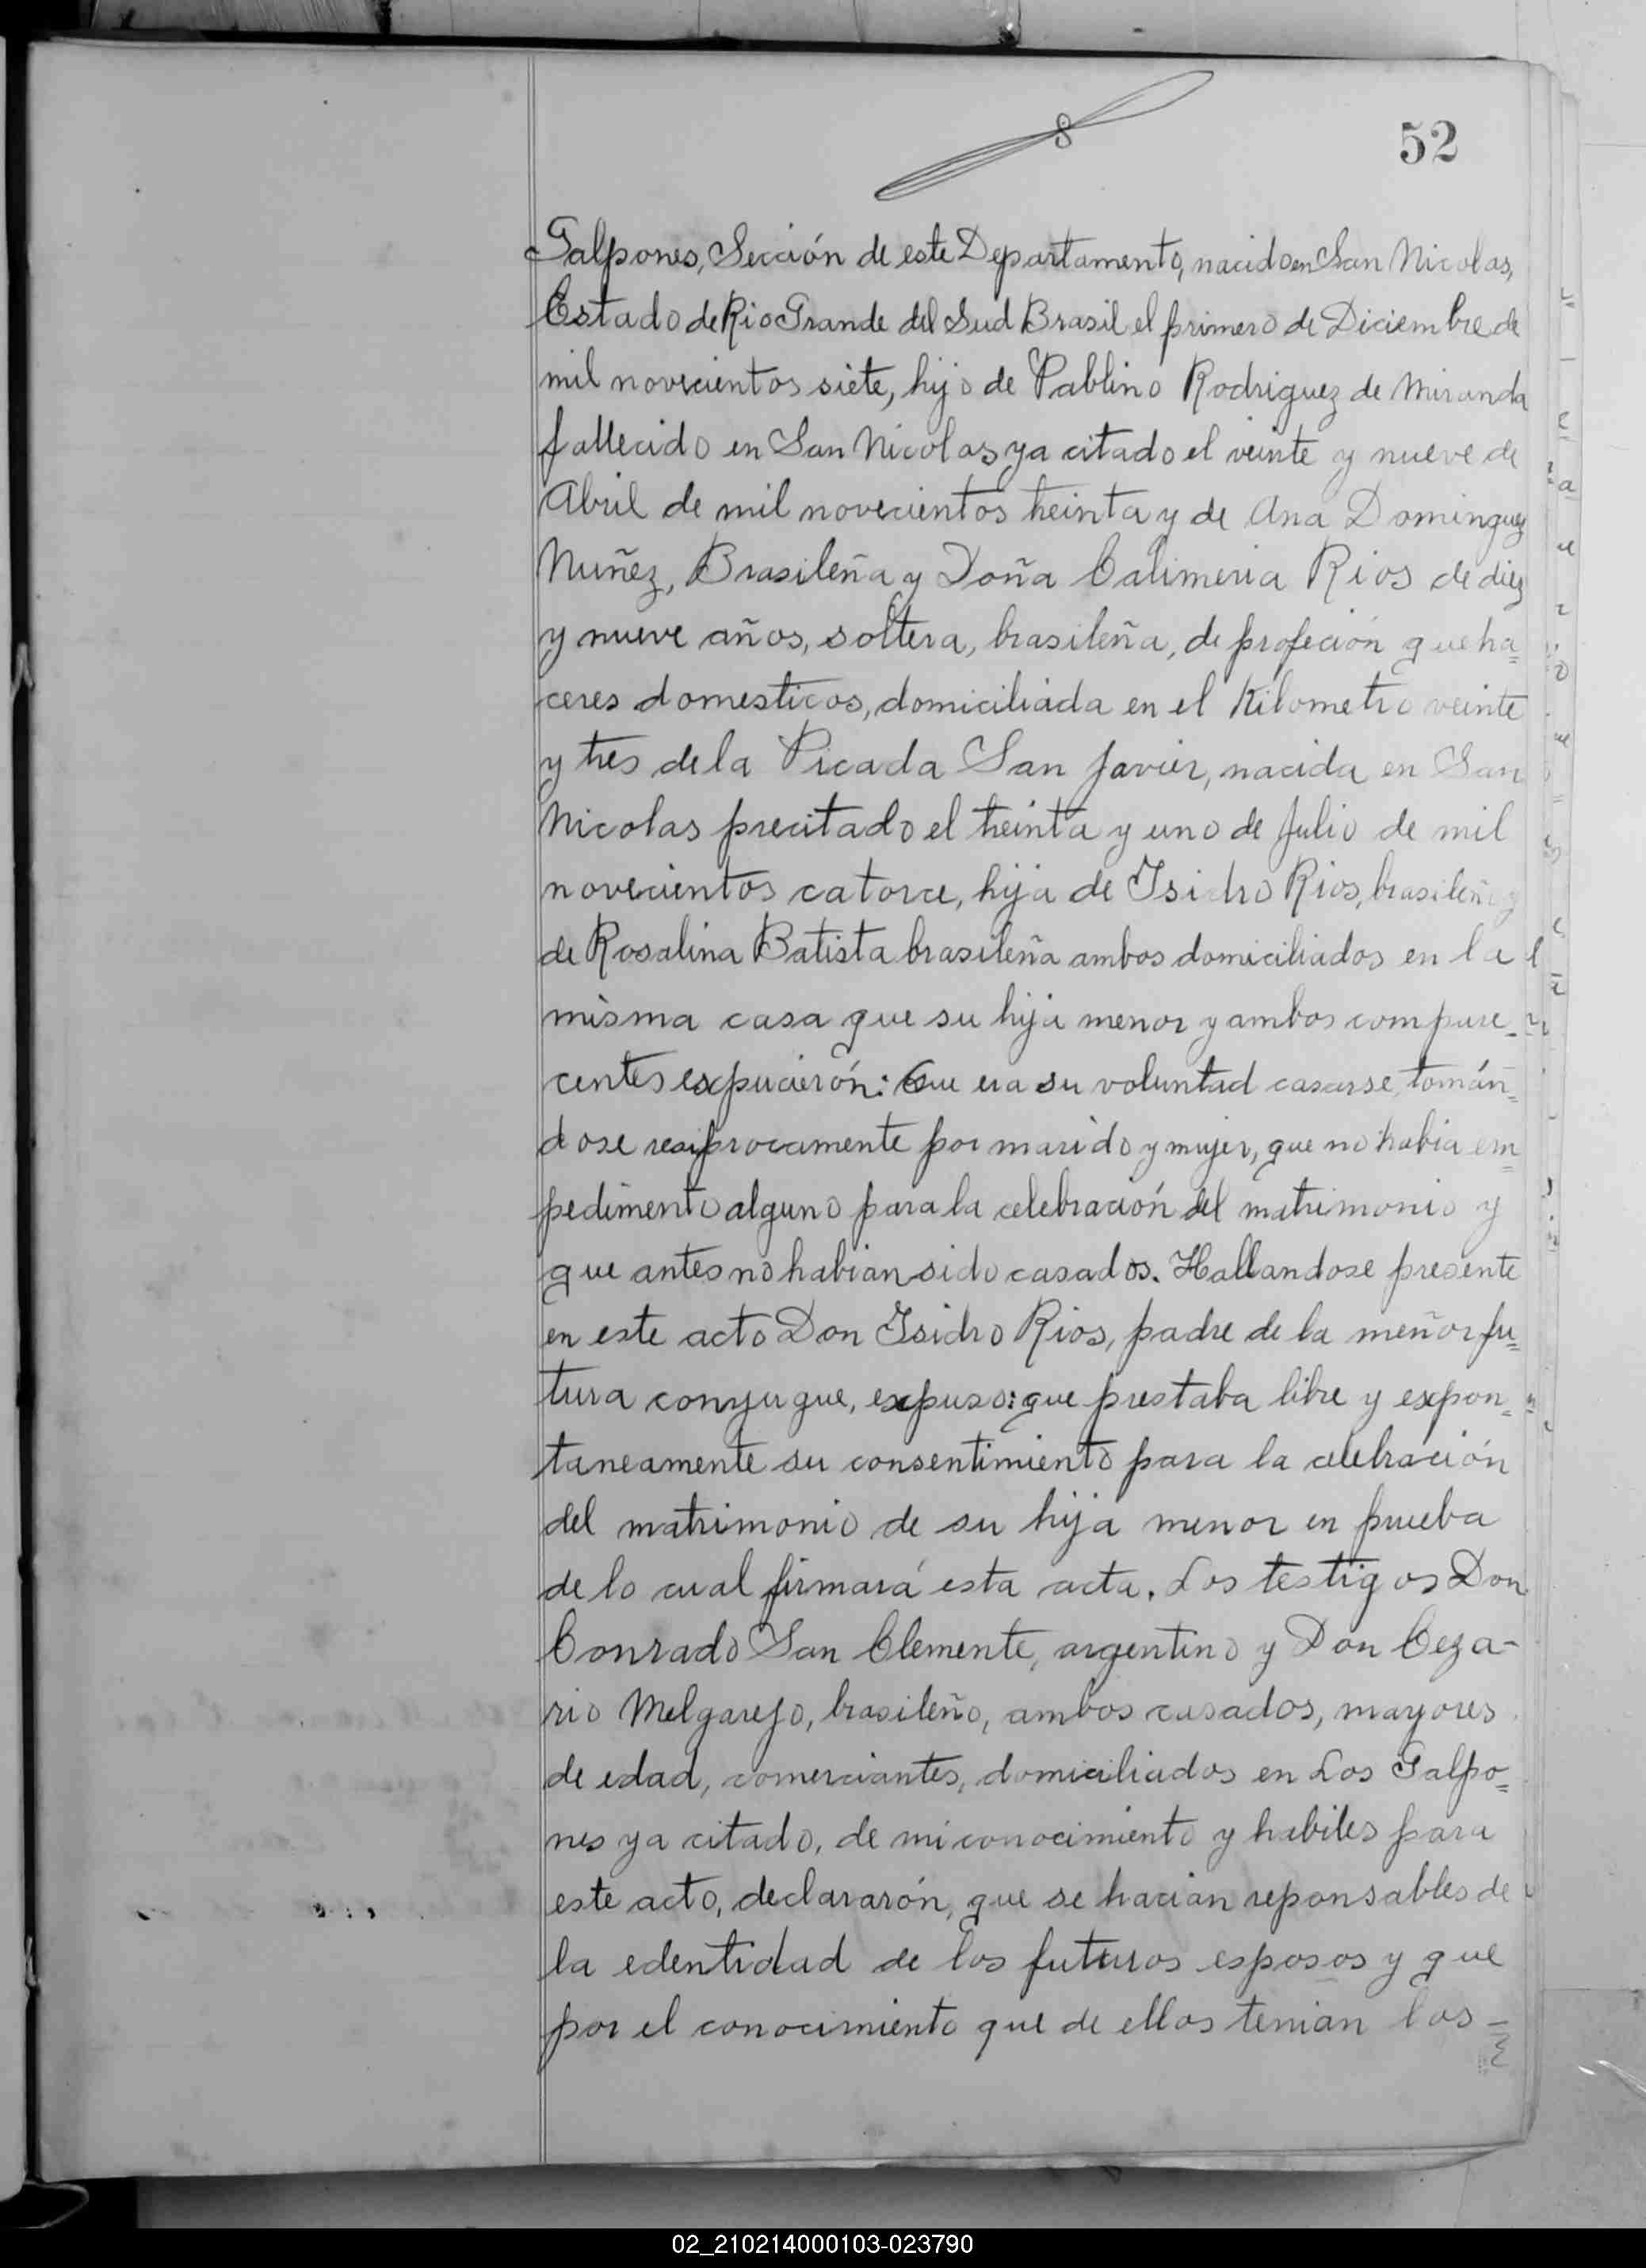 8
52
Galpones, Sección de este Departamento, nacido en San Nicolas,
Estado de Rio Grande del Sud Brasil el primero de Diciembre de
mil novecientos siete, hijo de Pablino Rodriguez de Miranda
fallecido en San Nicolas ya citado el veinte y nueve de
Abril de mil novecientos treinta y de Ana Dominguez
Nuñez, Brasileña y Doña Calimeria Rios de diez
y nueve años, soltera, brasileña, de profeción queha=
ceres domesticos, domiciliada en el Kilometro veinte
y tres de la Picada San Javier, nacida en San
Nicolas precitado el treinta y uno de Julio de mil
novecientos catorce, hija de Isidro Rios, brasileño y
de Rosalina Batista brasileña ambos domiciliados en la
misma casa que su hija menor y ambos compare-
centes expucierón: Que era su voluntad casarse, tomán=
dose resiprocamente por marido y mujer, que no habia em=
pedimento alguno para la celebración del matrimonio y
que antes no habian sido casados. Hallandose presente
en este acto Don Isidro Rios, padre de la meñor fu=
tura conyugue, expuso: que prestaba libre y expon=
taneamente su consentimiento para la celebración
del matrimonio de su hija menor en prueba
de lo cual firmará esta acta. Los testigos Don
Conrado San Clemente, argentino y Don Ceza-
rio Melgarejo, brasileño, ambos casados, mayores
de edad, comerciantes, domiciliados en Los Galpo=
nes ya citado, de mi conocimiento y habiles para
este acto, declararón, que se hacian reponsables de
la edentidad de los futuros esposos y que
por el conocimiento que de ellos tenian los -
02_210214000103-023790